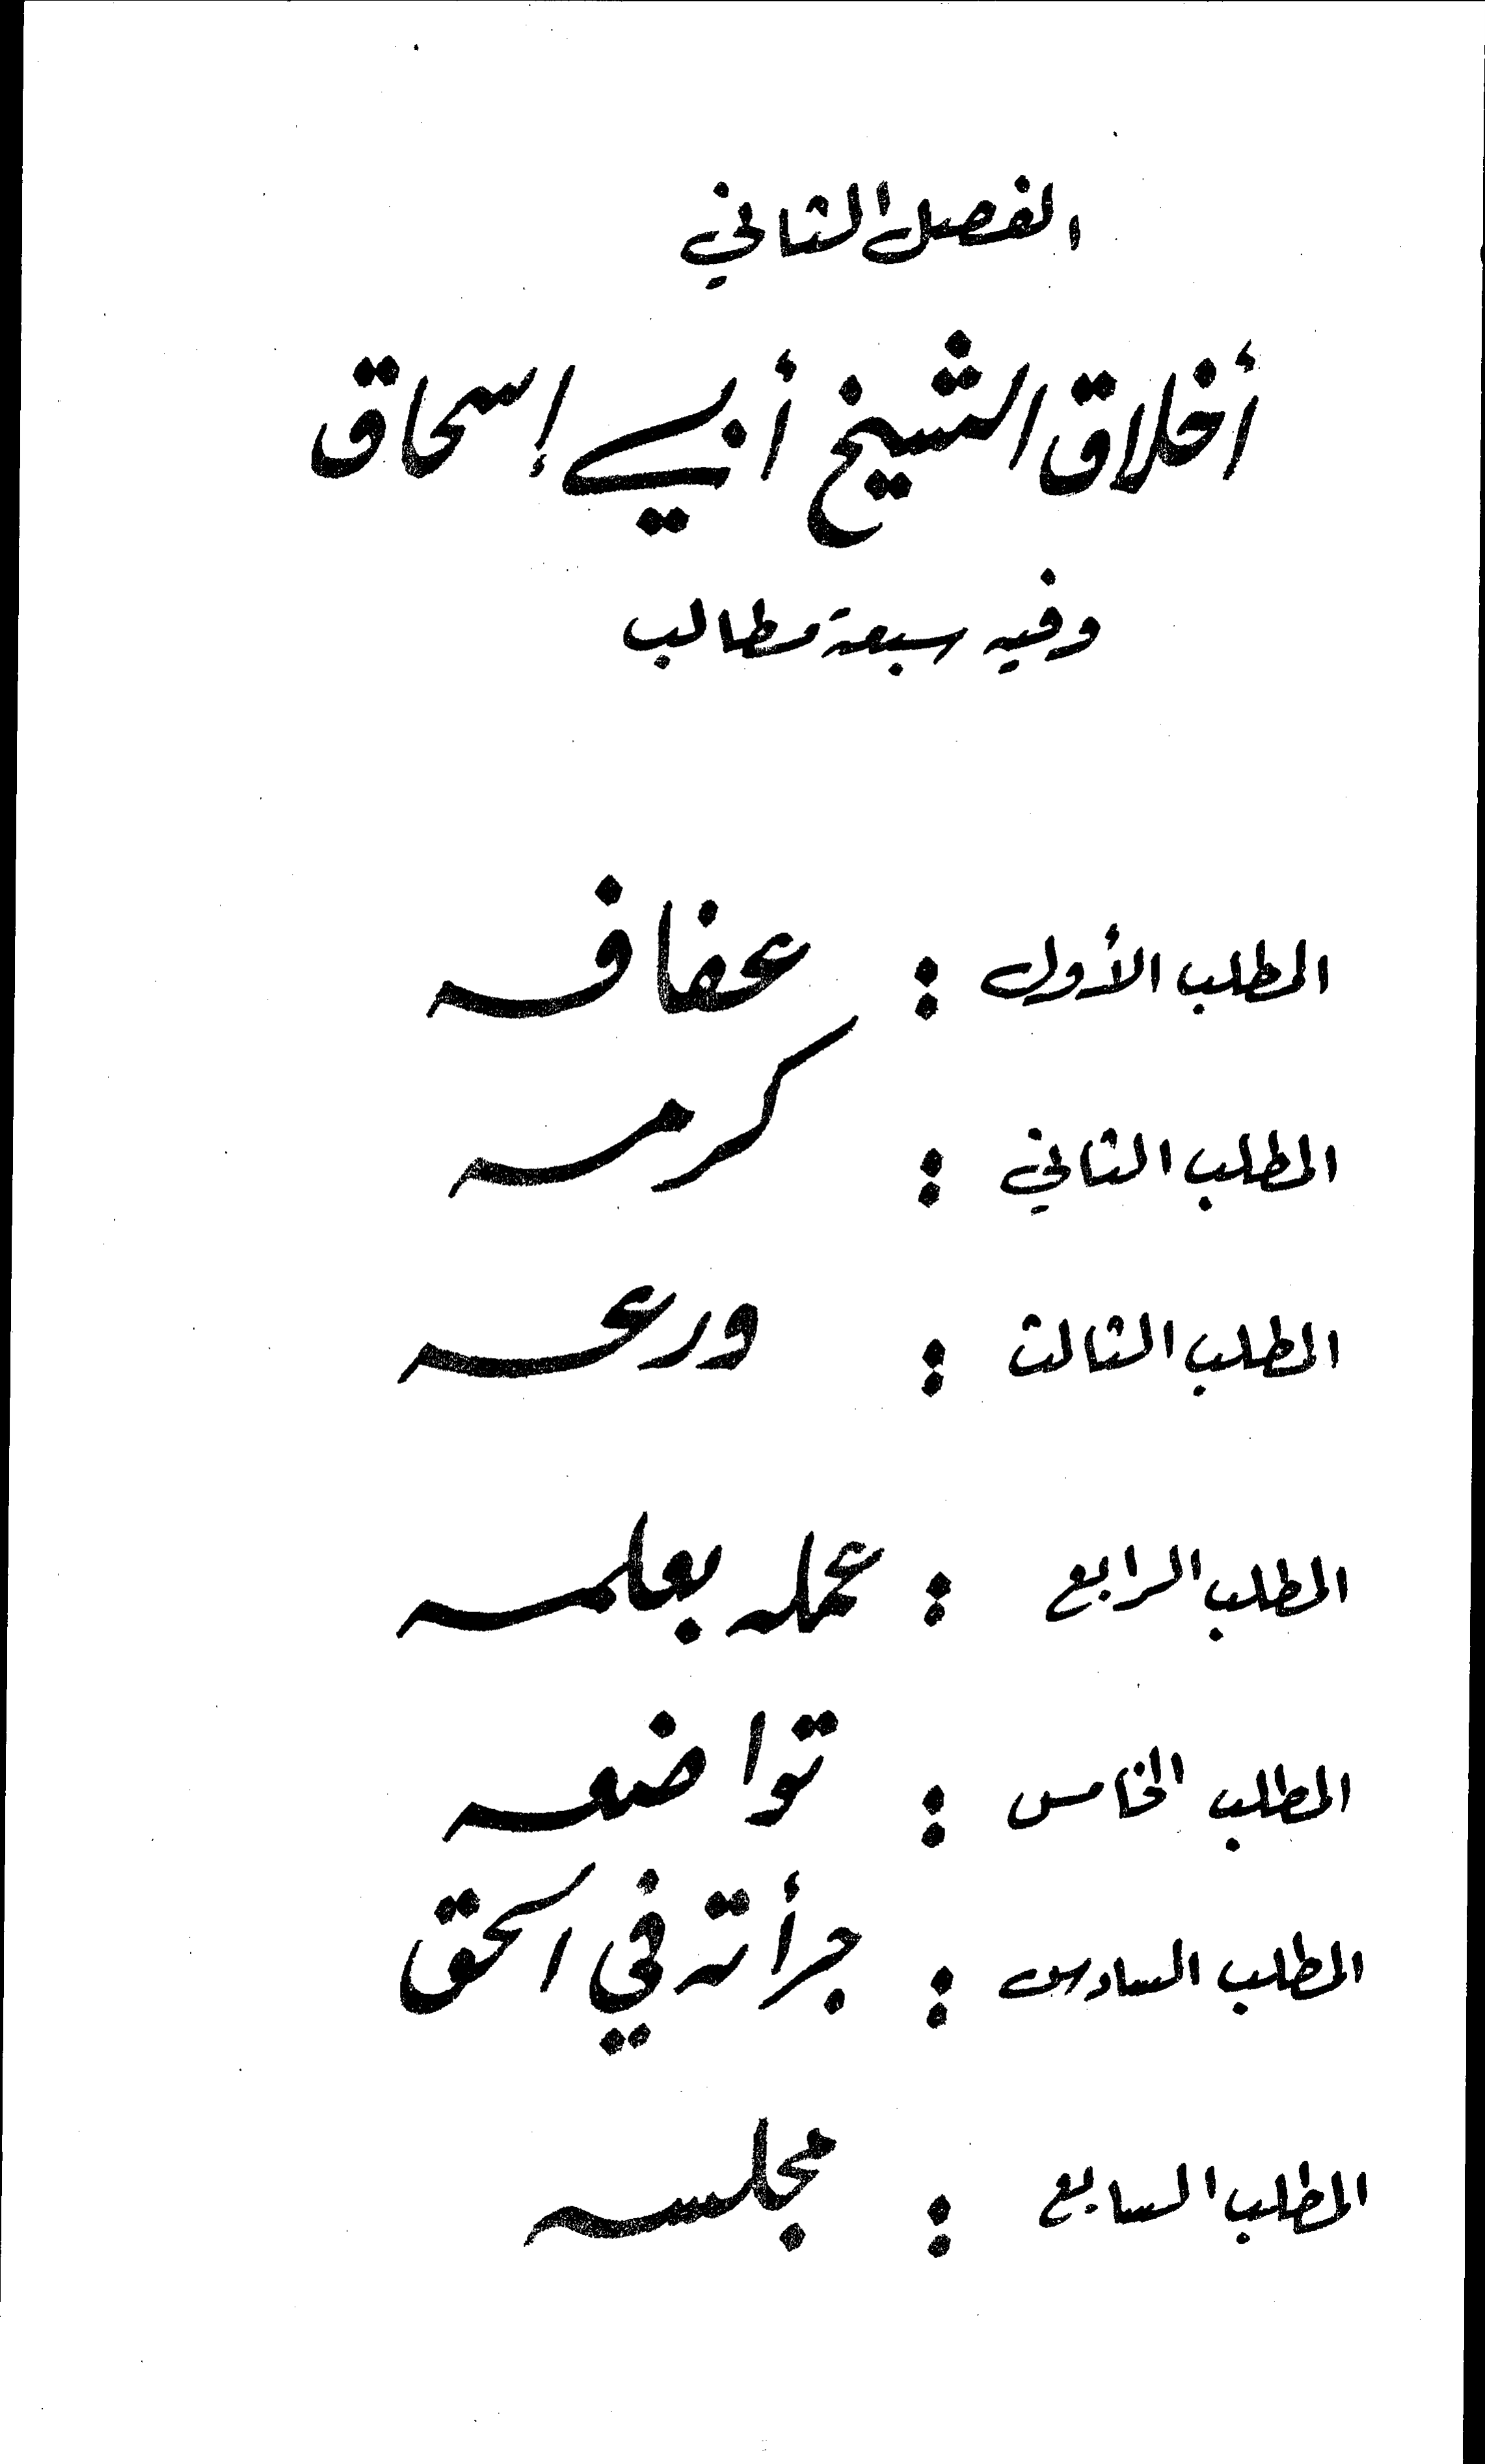 الفصل الثاني
أخلاق الشيخ أبي إسحاق
وفيه سبعة مطالب
المطلب الأول : عفافه
المطلب الثاني : كرمه
المطلب الثالث : ورعه
المطلب الرابع : عمله بعلمه
المطلب الخامس : تواضعه
المطلب السادس : جرأته في الحق
المطلب السابع : مجلسه